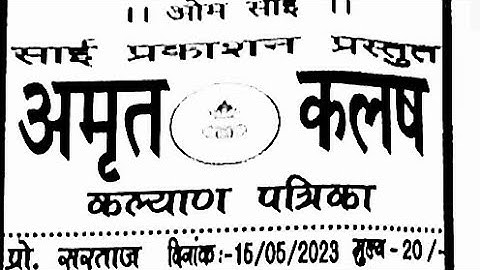 ।। ओम साई ।।
साई प्रकाशन प्रस्तुत
अमृत कलष
कल्याण पत्रिका
प्रो. सरताज दिनांक:-15/05/2023 मुल्य-20/-